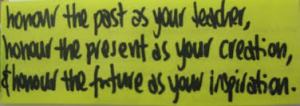 honour the past as your teacher,
honour the present as your creation,
& honour the future as your inspiration.